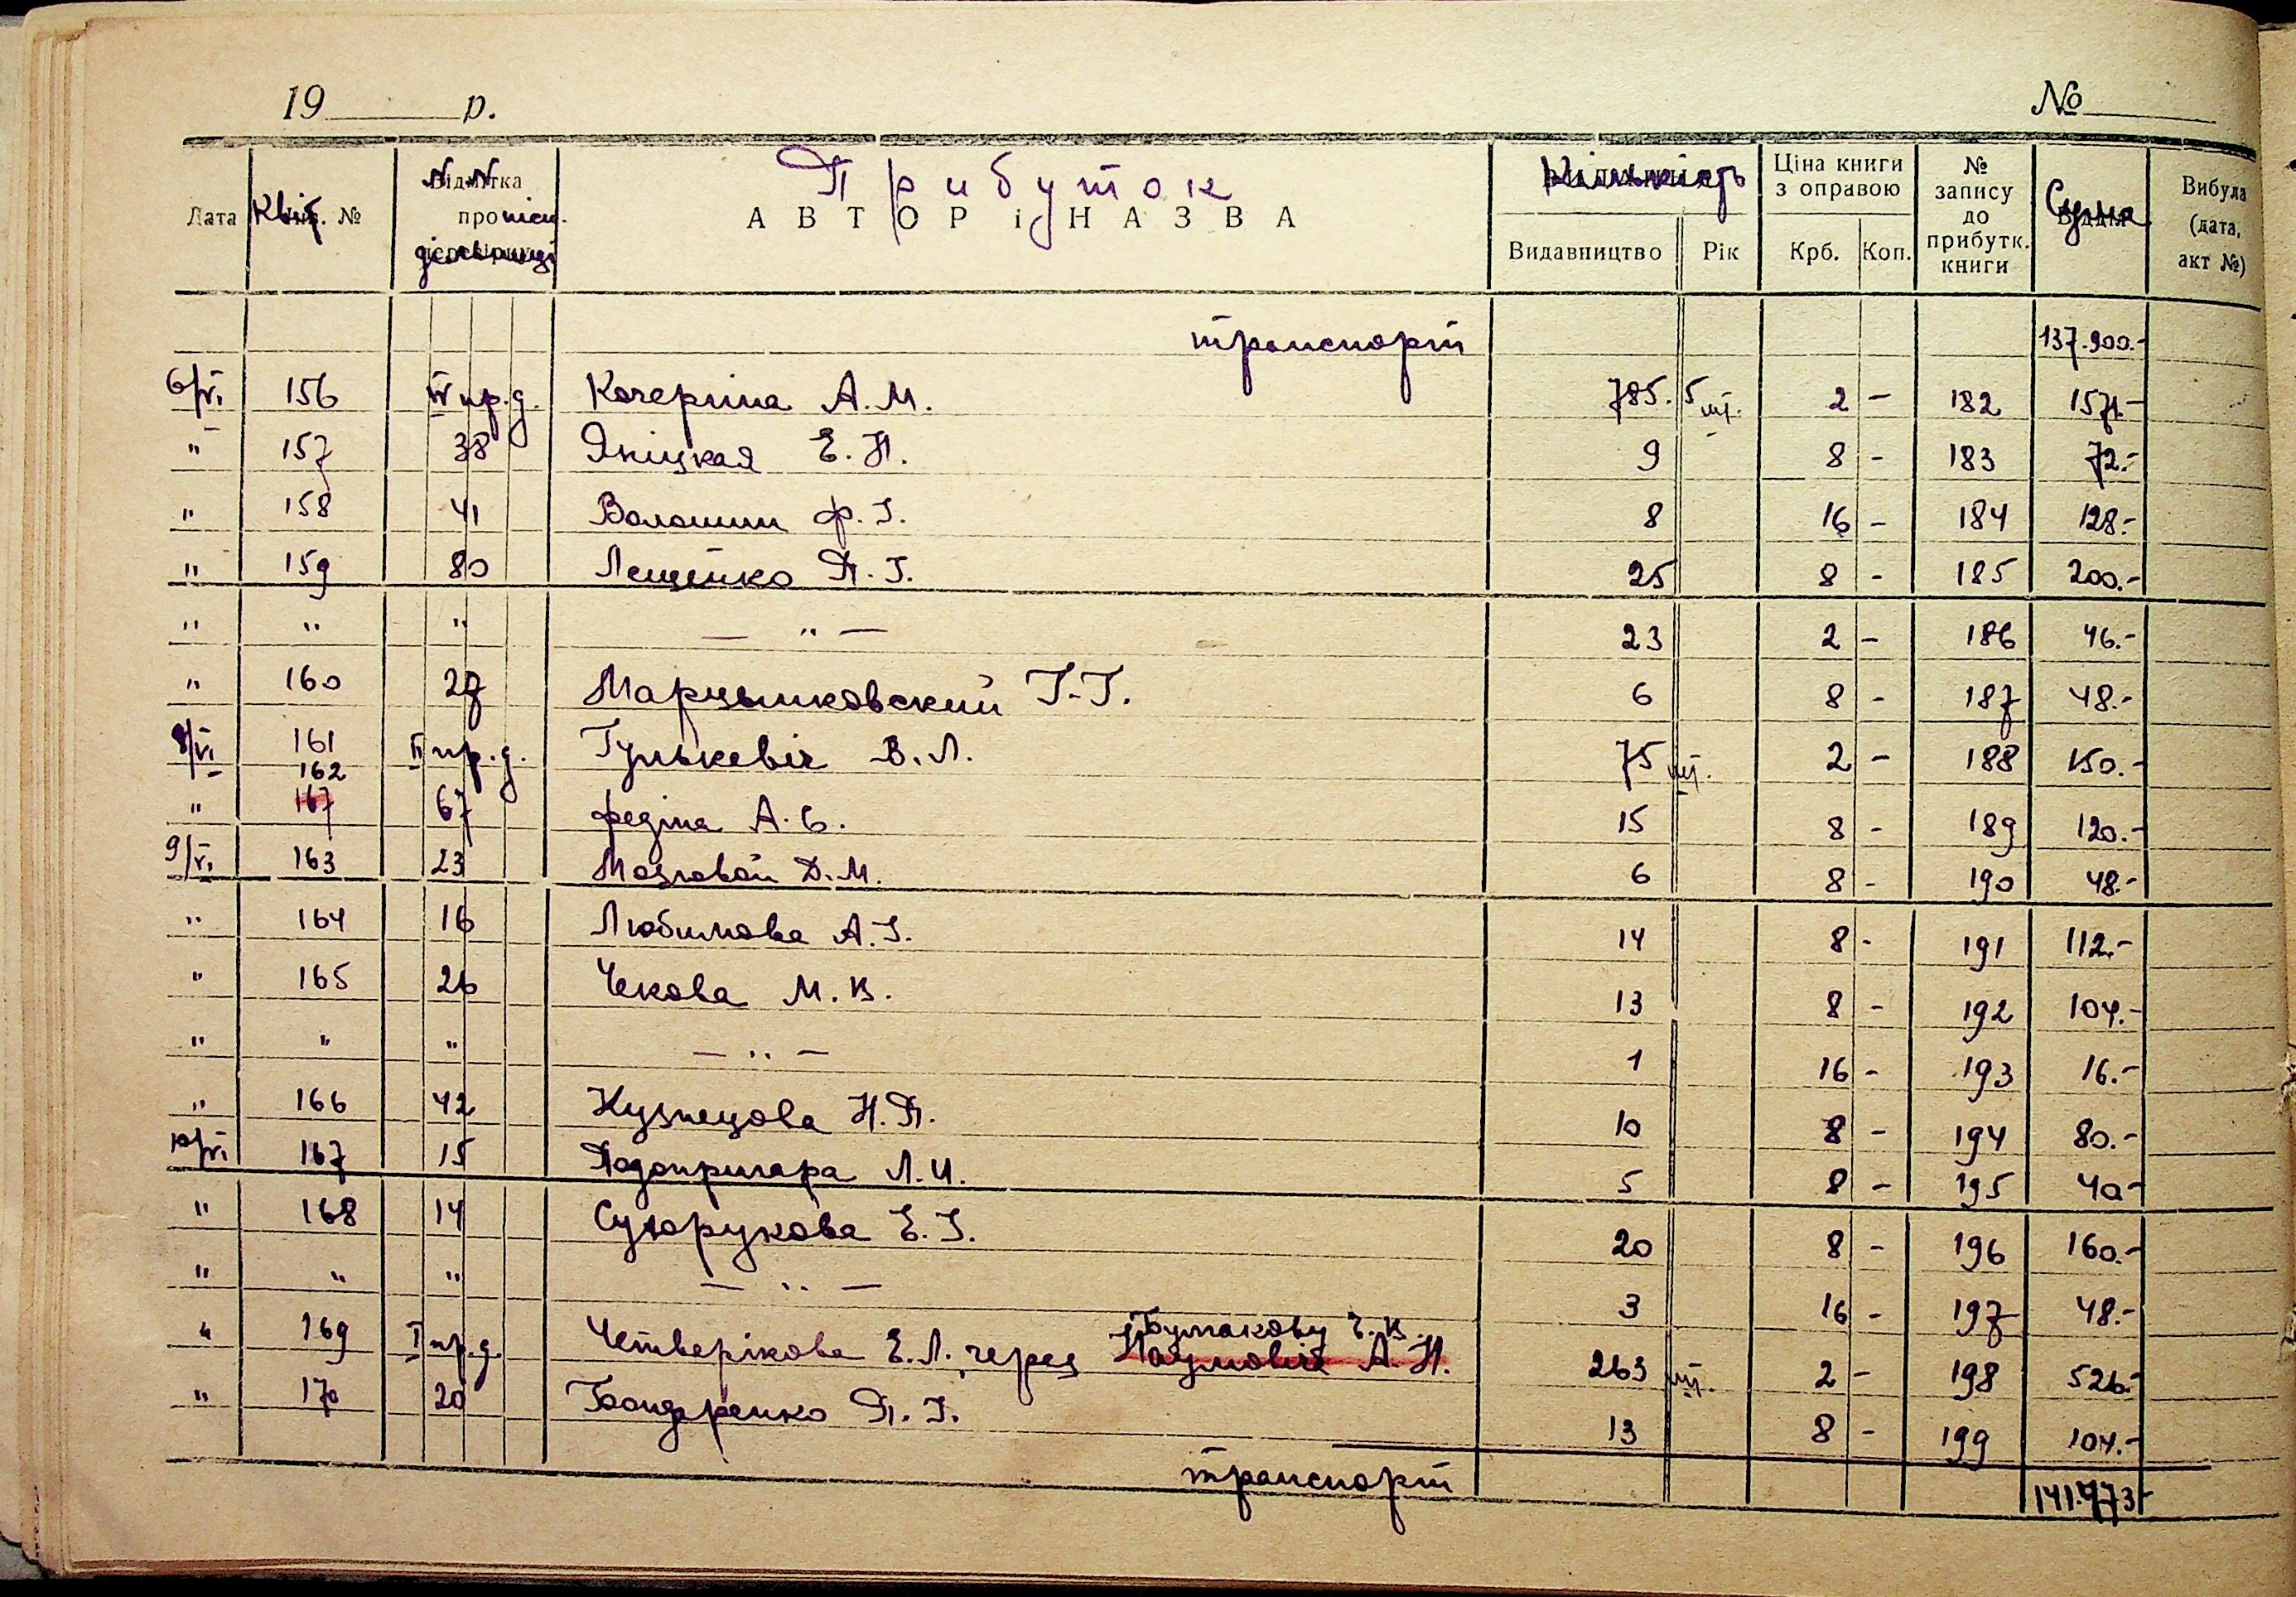 19 р. №
Дата Квіт. № N N піси. дільниці Прибуток Кількість Ціна книги з оправою № запису до прибутк. книги Сума Вибула (дата, акт №)
АВТОР і НАЗВА Видавництво Рік Крб. Коп.
транспорт 137.900.-
6/VI 156 IV пр.д. Кочеріна А.М. 785.5 шт. 2 - 182 1571.-
" 157 38 Яніцкая Е.Н. 9 8 - 183 72.-
" 158 41 Волошин Ф.І. 8 16 - 184 128.-
" 159 80 Лещенко П.Г. 25 8 - 185 200.-
" " " — " — 23 2 - 186 46.-
" 160 27 Марцышковский Г.Г. 6 8 - 187 48.-
8/VI 161 II пр.д. Гулькевіч В.Л. 75 шт. 2 - 188 150.-
" 162 167 67 Федіна А.С. 15 8 - 189 120.-
9/VI 163 23 Мозговой Д.М. 6 8 - 190 48.-
" 164 16 Любимова А.І. 14 8 - 191 112.-
" 165 26 Чекова М.В. 13 8 - 192 104.-
" " " — " — 1 16 - 193 16.-
" 166 42 Кузнецова Н.П. 10 8 - 194 80.-
10/VI 167 15 Подопригара Л.И. 5 8 - 195 40.-
" 168 14 Сухорукова Е.І. 20 8 - 196 160.-
" " " — " — 3 16 - 197 48.-
Бумакову Е.В.
" 169 I пр.д. Четверікова Е.Л. через Наумовіч А.Н. 263 шт. 2 - 198 526.-
" 170 20 Бондренко П.І. 13 8 - 199 104.-
транспорт 141.473-